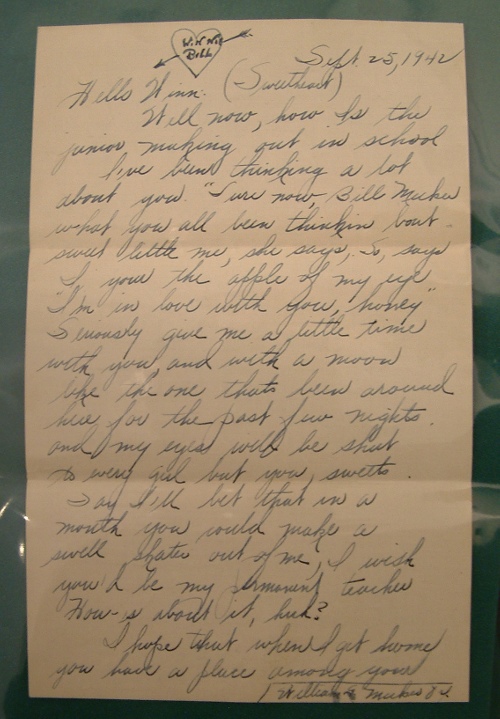 W.H.
Bill
Sept. 25, 1942
Hello Winn. (Sweetheart)
Well now, how is the
junior making out in school
I've been thinking a lot
about you. "Sure now, Bill
what you all been thinkin bout
sweet little me, she says, So, says
I your the apple of my eye
I'm in love with you, honey"
Seriously give me a little time
with you, and with a moon
like the one thats been around
here for the past few nights.
and my eyes will be shut
to every girl but you, sweets.
Say I'll bet that in a
month you could make a
swell skater out of me, I wish
you'd be my permanent teacher
How-s about it, huh?
I hope that when I get home
you have a place among your
William